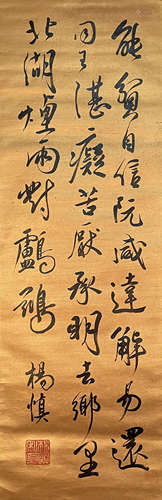 能貧自信阮咸達解易還
同王湛癡苦厭承明去鄉里
北湖煙雨對鸕鶿
楊慎